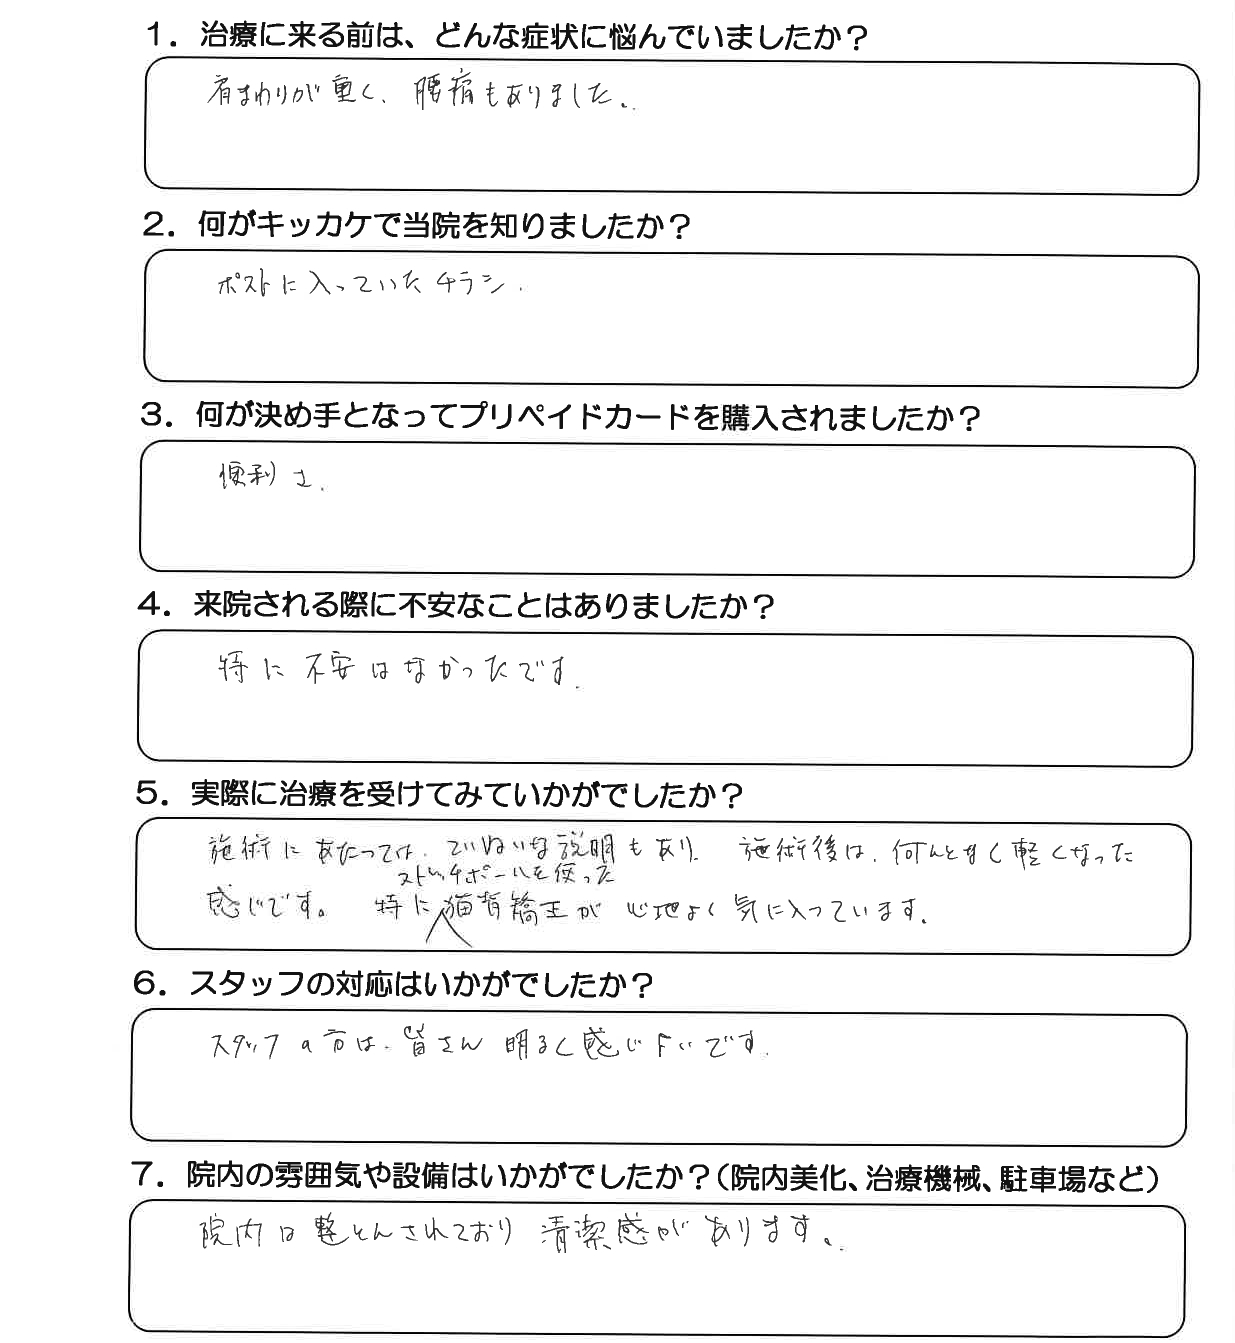 1．治療に来る前は、どんな症状に悩んでいましたか？
肩まわりが重く、腰痛もありました。
2．何がキッカケで当院を知りましたか？
ポストに入っていたチラシ．
3．何が決め手となってプリペイドカードを購入されましたか？
便利さ．
4．来院される際に不安なことはありましたか？
特に不安はなかったです．
5．実際に治療を受けてみていかがでしたか？
施術にあたっては、ていねいな説明もあり、施術後は、何んとなく軽くなった
ストレッチポールを使った
感じです。 特に猫背矯正が心地よく気に入っています．
6．スタッフの対応はいかがでしたか？
スタッフの方は、皆さん明るく感じ下いです．
7．院内の雰囲気や設備はいかがでしたか？（院内美化、治療機械、駐車場など）
院内は整とんされており清潔感があります。